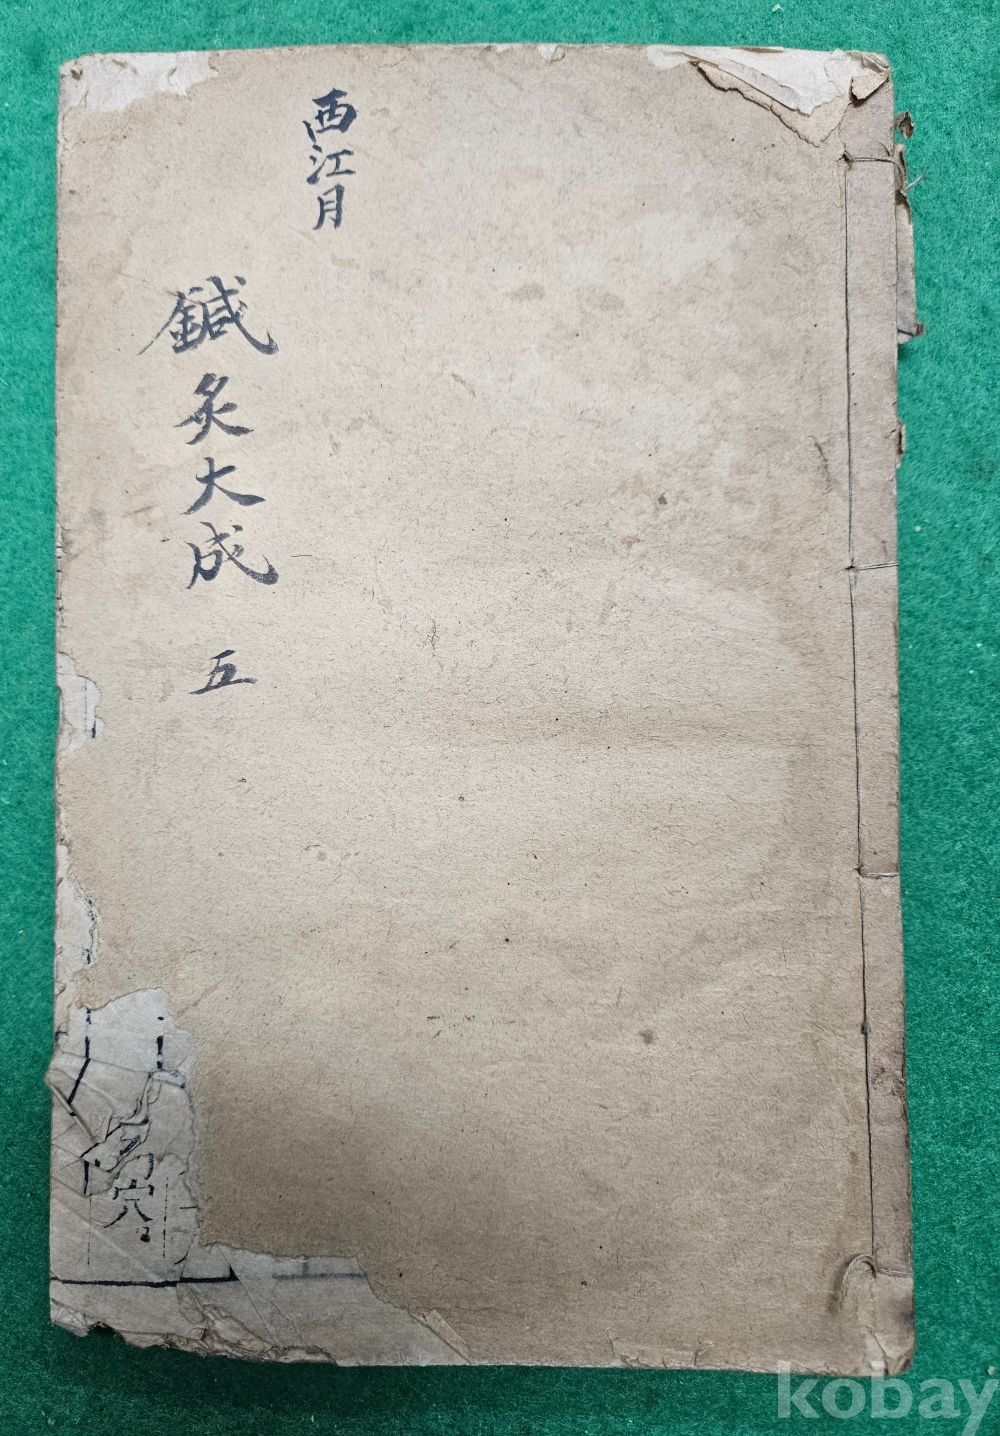 西江月
鍼灸大成 五
穴
kobay